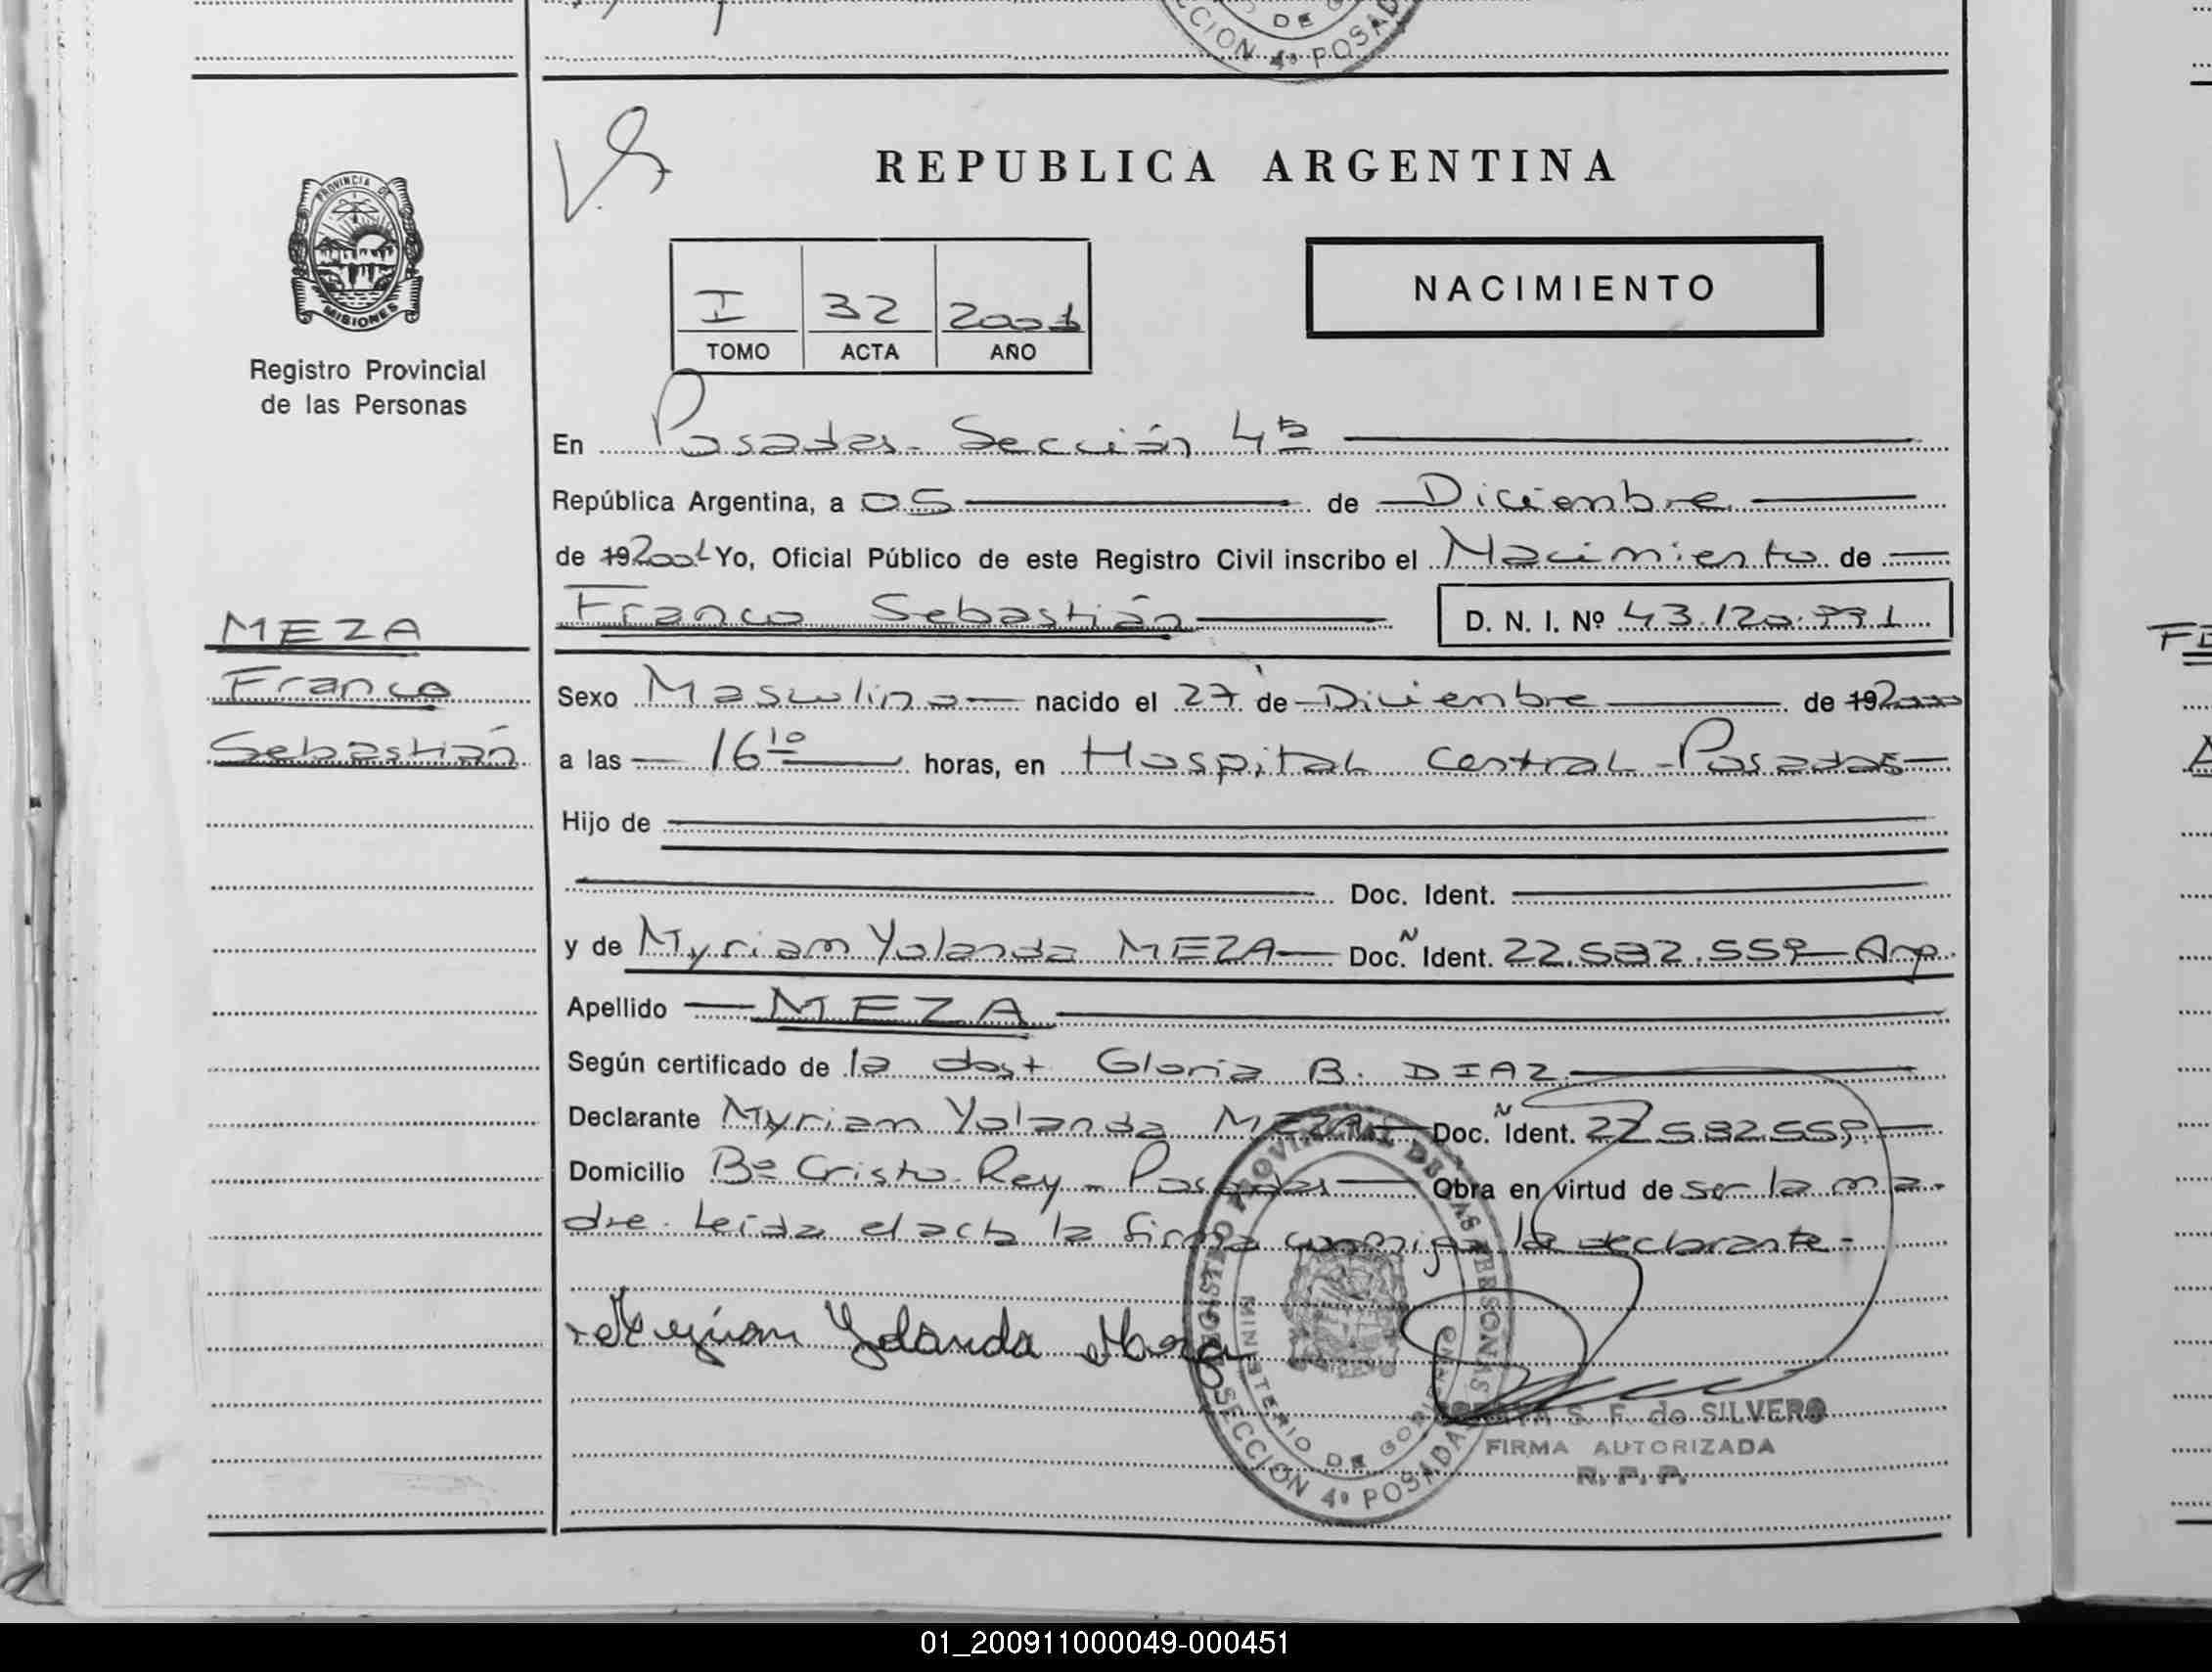 DE
CCION 4ª POSAD
PROVINCIA DE
MISIONES
Registro Provincial
de las Personas
REPUBLICA ARGENTINA
I 32 2001
TOMO ACTA AÑO
NACIMIENTO
En Posadas - Sección 4ta
República Argentina, a 05 de Diciembre
de 192001 Yo, Oficial Público de este Registro Civil inscribo el Nacimiento de
MEZA
Franco Sebastián D. N. I. Nº 43.120.991
Franco
Sexo Masculino nacido el 27 de Diciembre de 192000
Sebastián
a las 16 10 horas, en Hospital Central - Posadas
Hijo de
Doc. Ident.
y de Myriam Yolanda MEZA Doc. Ident. 22.582.559 Arg.
Apellido MEZA
Según certificado de la obst Gloria B. DIAZ
Declarante Myriam Yolanda MEZA Doc. Ident. 22.582.559
Domicilio Bº Cristo Rey - Posadas Obra en virtud de ser la ma-
dre. Leída el acta la firma conmigo la declarante -
Myrian Yolanda Meza
REGISTRO PROVINCIAL DE LAS PERSONAS
MINISTERIO DE GOBIERNO
SECCION 4ª POSADAS
S. F. de SILVERO
FIRMA AUTORIZADA
R. P. P.
01_200911000049-000451